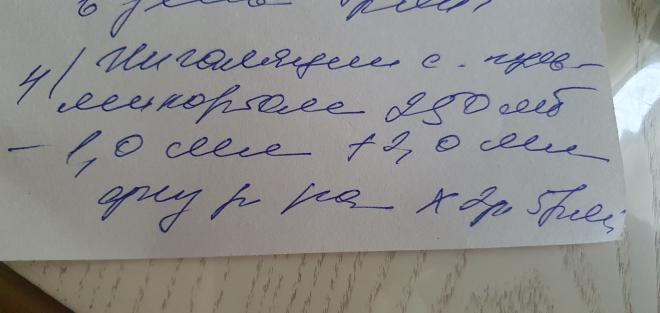 в день
4) Ингаляции с пуль-
микортом 250 мг
- 1,0 мл + 2,0 мл
физ р-ра х 2р 5 дней